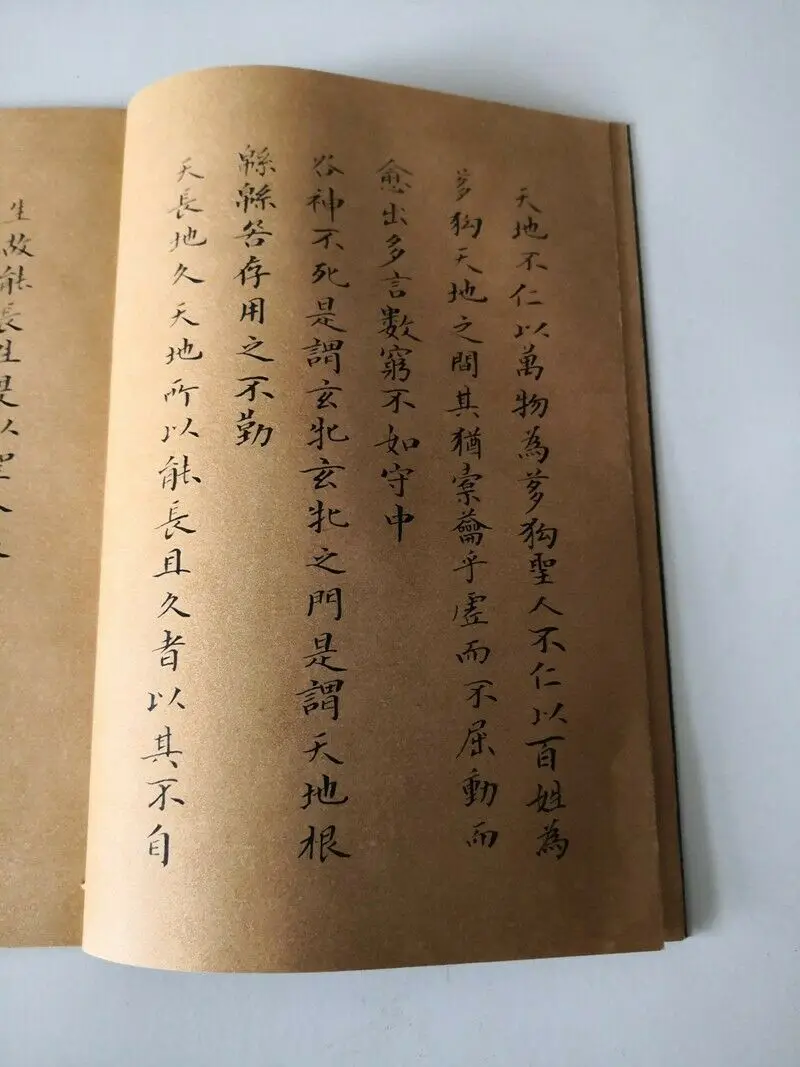 天地不仁以萬物為芻狗聖人不仁以百姓為
芻狗天地之間其猶橐蘥乎虛而不屈動而
愈出多言數窮不如守中
谷神不死是謂玄牝玄牝之門是謂天地根
緜緜若存用之不勤
天長地久天地所以能長且久者以其不自
生故能長生是以聖人